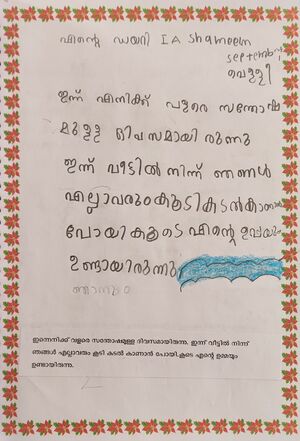 എന്റെ ഡയറി I A Shameem
September
വെള്ളി
ഇന്ന് എനിക്ക് വളരെ സന്തോഷ
മുള്ള ദിവസമായി രുന്നു
ഇന്ന് വീട്ടിൽ നിന്ന് ഞങ്ങൾ
എല്ലാവരുംകൂടി കടൽകാണാൻ
പോയി കൂടെ എന്റെ ഉമ്മയും
ഉണ്ടായിരുന്നു
ഇന്നെനിക്ക് വളരെ സന്തോഷമുള്ള ദിവസമായിരുന്നു. ഇന്ന് വീട്ടിൽ നിന്ന്
ഞങ്ങൾ എല്ലാവരും കൂടി കടൽ കാണാൻ പോയി.കൂടെ എന്റെ ഉമ്മയും
ഉണ്ടായിരുന്നു.